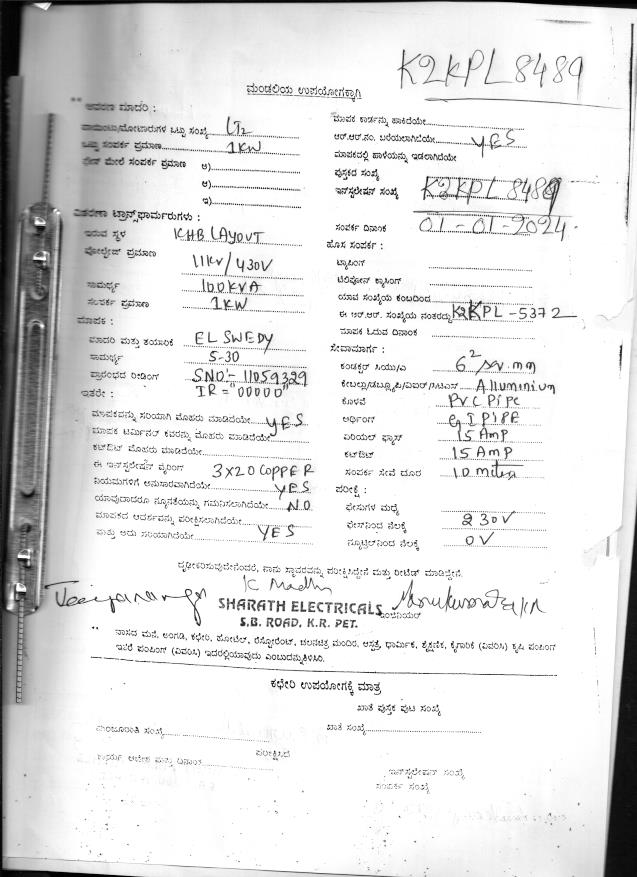 K2KPL8489
ಮಂಡಲಿಯ ಉಪಯೋಗಕ್ಕಾಗಿ
** ಆವರಣ ಮಾದರಿ :
ಪಾಯಿಂಟು/ಮೋಟಾರುಗಳ ಒಟ್ಟು ಸಂಖ್ಯೆ LT2
ಒಟ್ಟು ಸಂಪರ್ಕ ಪ್ರಮಾಣ 1KW
ಮೇಲೆ ಸಂಪರ್ಕ ಪ್ರಮಾಣ ಅ)
ಆ)
ಇ)
ವಿತರಣಾ ಟ್ರಾನ್ಸ್‌ಫಾರ್ಮರುಗಳು :
ಇರುವ ಸ್ಥಳ KHB LAYOUT
ವೋಲ್ಟೇಜ್ ಪ್ರಮಾಣ 11KV/430V
ಸಾಮರ್ಥ್ಯ 100KVA
ಸಂಪರ್ಕ ಪ್ರಮಾಣ 1KW
ಮಾಪಕ :
ಮಾದರಿ ಮತ್ತು ತಯಾರಿಕೆ EL SWEDY
ಸಾಮರ್ಥ್ಯ 5-30
ಪ್ರಾರಂಭದ ರೀಡಿಂಗ್ SNO:- 11059329
ಇತರೇ : IR="00000"
ಮಾಪಕವನ್ನು ಸರಿಯಾಗಿ ಮೊಹರು ಮಾಡಿದೆಯೇ YES
ಮಾಪಕ ಟರ್ಮಿನಲ್ ಕವರನ್ನು ಮೊಹರು ಮಾಡಿದೆಯೇ
ಕಟ್‌ಔಟ್ ಮೊಹರು ಮಾಡಿದೆಯೇ
ಈ ಇನ್‌ಸ್ಟಲೇಷನ್ ವೈರಿಂಗ್ 3X20 COPPER
ನಿಯಮಗಳಿಗೆ ಅನುಸಾರವಾಗಿದೆಯೇ YES
ಯಾವುದಾದರೂ ನ್ಯೂನತೆಯನ್ನು ಗಮನಿಸಲಾಗಿದೆಯೇ NO
ಮಾಪಕದ ಆದರ್ಶವನ್ನು ಪರೀಕ್ಷಿಸಲಾಗಿದೆಯೇ
ಮತ್ತು ಅದು ಸರಿಯಾಗಿದೆಯೇ YES
ಮಾಪಕ ಕಾರ್ಡನ್ನು ಹಾಕಿದೆಯೇ
ಆರ್.ಆರ್.ನಂ. ಬರೆಯಲಾಗಿದೆಯೇ YES
ಮಾಪಕದಲ್ಲಿ ಹಾಳೆಯನ್ನು ಇಡಲಾಗಿದೆಯೇ
ಪುಸ್ತಕದ ಸಂಖ್ಯೆ
ಇನ್‌ಸ್ಟಲೇಷನ್ ಸಂಖ್ಯೆ K2KPL 8489
ಸಂಪರ್ಕ ದಿನಾಂಕ 01-01-2024
ಹೊಸ ಸಂಪರ್ಕ :
ಟ್ಯಾಪಿಂಗ್
ಟೆಲಿಫೋನ್ ಕ್ರಾಸಿಂಗ್
ಯಾವ ಸಂಖ್ಯೆಯ ಕಂಬದಿಂದ
ಈ ಆರ್.ಆರ್. ಸಂಖ್ಯೆಯ ನಂತರದ್ದು K2KPL-5372
ಮಾಪಕ ಓದುವ ದಿನಾಂಕ
ಸೇವಾಮಾರ್ಗ :
ಕಂಡಕ್ಟರ್ ಸಿಯು/ಎ 6² sv.mm
Alluminium
ಕೊಳವೆ PVC Pipe
ಅರ್ಥಿಂಗ್ GI PIPE
ಏರಿಯಲ್ ಫ್ಯೂಸ್ 15 Amp
ಕಟ್‌ಔಟ್ 15 AMP
ಸಂಪರ್ಕ ಸೇವೆ ದೂರ 10 miter
ಪರೀಕ್ಷೆ :
ಫೇಸುಗಳ ಮಧ್ಯೆ
ಫೇಸ್‌ನಿಂದ ನೆಲಕ್ಕೆ 230V
ನ್ಯೂಟ್ರಲ್‌ನಿಂದ ನೆಲಕ್ಕೆ 0V
ದೃಢೀಕರಿಸುವುದೇನೆಂದರೆ, ನಾನು ಸ್ಥಾವರವನ್ನು ಪರೀಕ್ಷಿಸಿದ್ದೇನೆ ಮತ್ತು ರೀಟೆಡ್ ಮಾಡಿದ್ದೇನೆ.
K Madhu
SHARATH ELECTRICALS
ಇಂಜಿನಿಯರ್
S.B. ROAD, K.R. PET.
** ವಾಸದ ಮನೆ, ಅಂಗಡಿ, ಕಛೇರಿ, ಹೋಟೆಲ್, ರೆಸ್ಟೋರೆಂಟ್, ಚಲನಚಿತ್ರ ಮಂದಿರ, ಆಸ್ಪತ್ರೆ, ಧಾರ್ಮಿಕ, ಶೈಕ್ಷಣಿಕ, ಕೈಗಾರಿಕೆ (ವಿವರಿಸಿ) ಕೃಷಿ ಪಂಪಿಂಗ್
ಇತರೆ ಪಂಪಿಂಗ್ (ವಿವರಿಸಿ) ಇದರಲ್ಲಿಯಾವುದು ಎಂಬುದನ್ನು ತಿಳಿಸಿರಿ.
ಕಛೇರಿ ಉಪಯೋಗಕ್ಕೆ ಮಾತ್ರ
ಖಾತೆ ಪುಸ್ತಕ ಪುಟ ಸಂಖ್ಯೆ
ಮಂಜೂರಾತಿ ಸಂಖ್ಯೆ
ಖಾತೆ ಸಂಖ್ಯೆ
ಪರೀಕ್ಷಿಸಿದೆ
ಕಾರ್ಯ ಆದೇಶ ಮತ್ತು ದಿನಾಂಕ
ಇನ್‌ಸ್ಟಲೇಷನ್ ಸಂಖ್ಯೆ
ಸಂಪರ್ಕ ಸಂಖ್ಯೆ